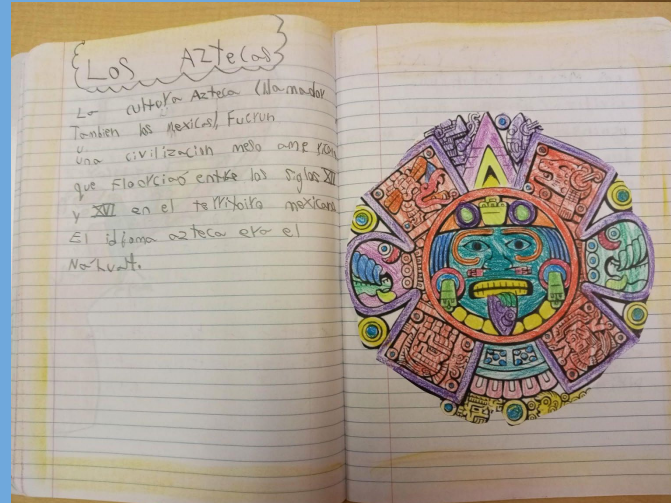 Los Aztecas
La cultura Azteca (llamador
Tambien los Mexicas), Fucrun
una civilización meso ame rican
que Floorciaó entre los siglos XII
y XVI en el territoiro mexicano
El idioma azteca era el
Náhuatl.